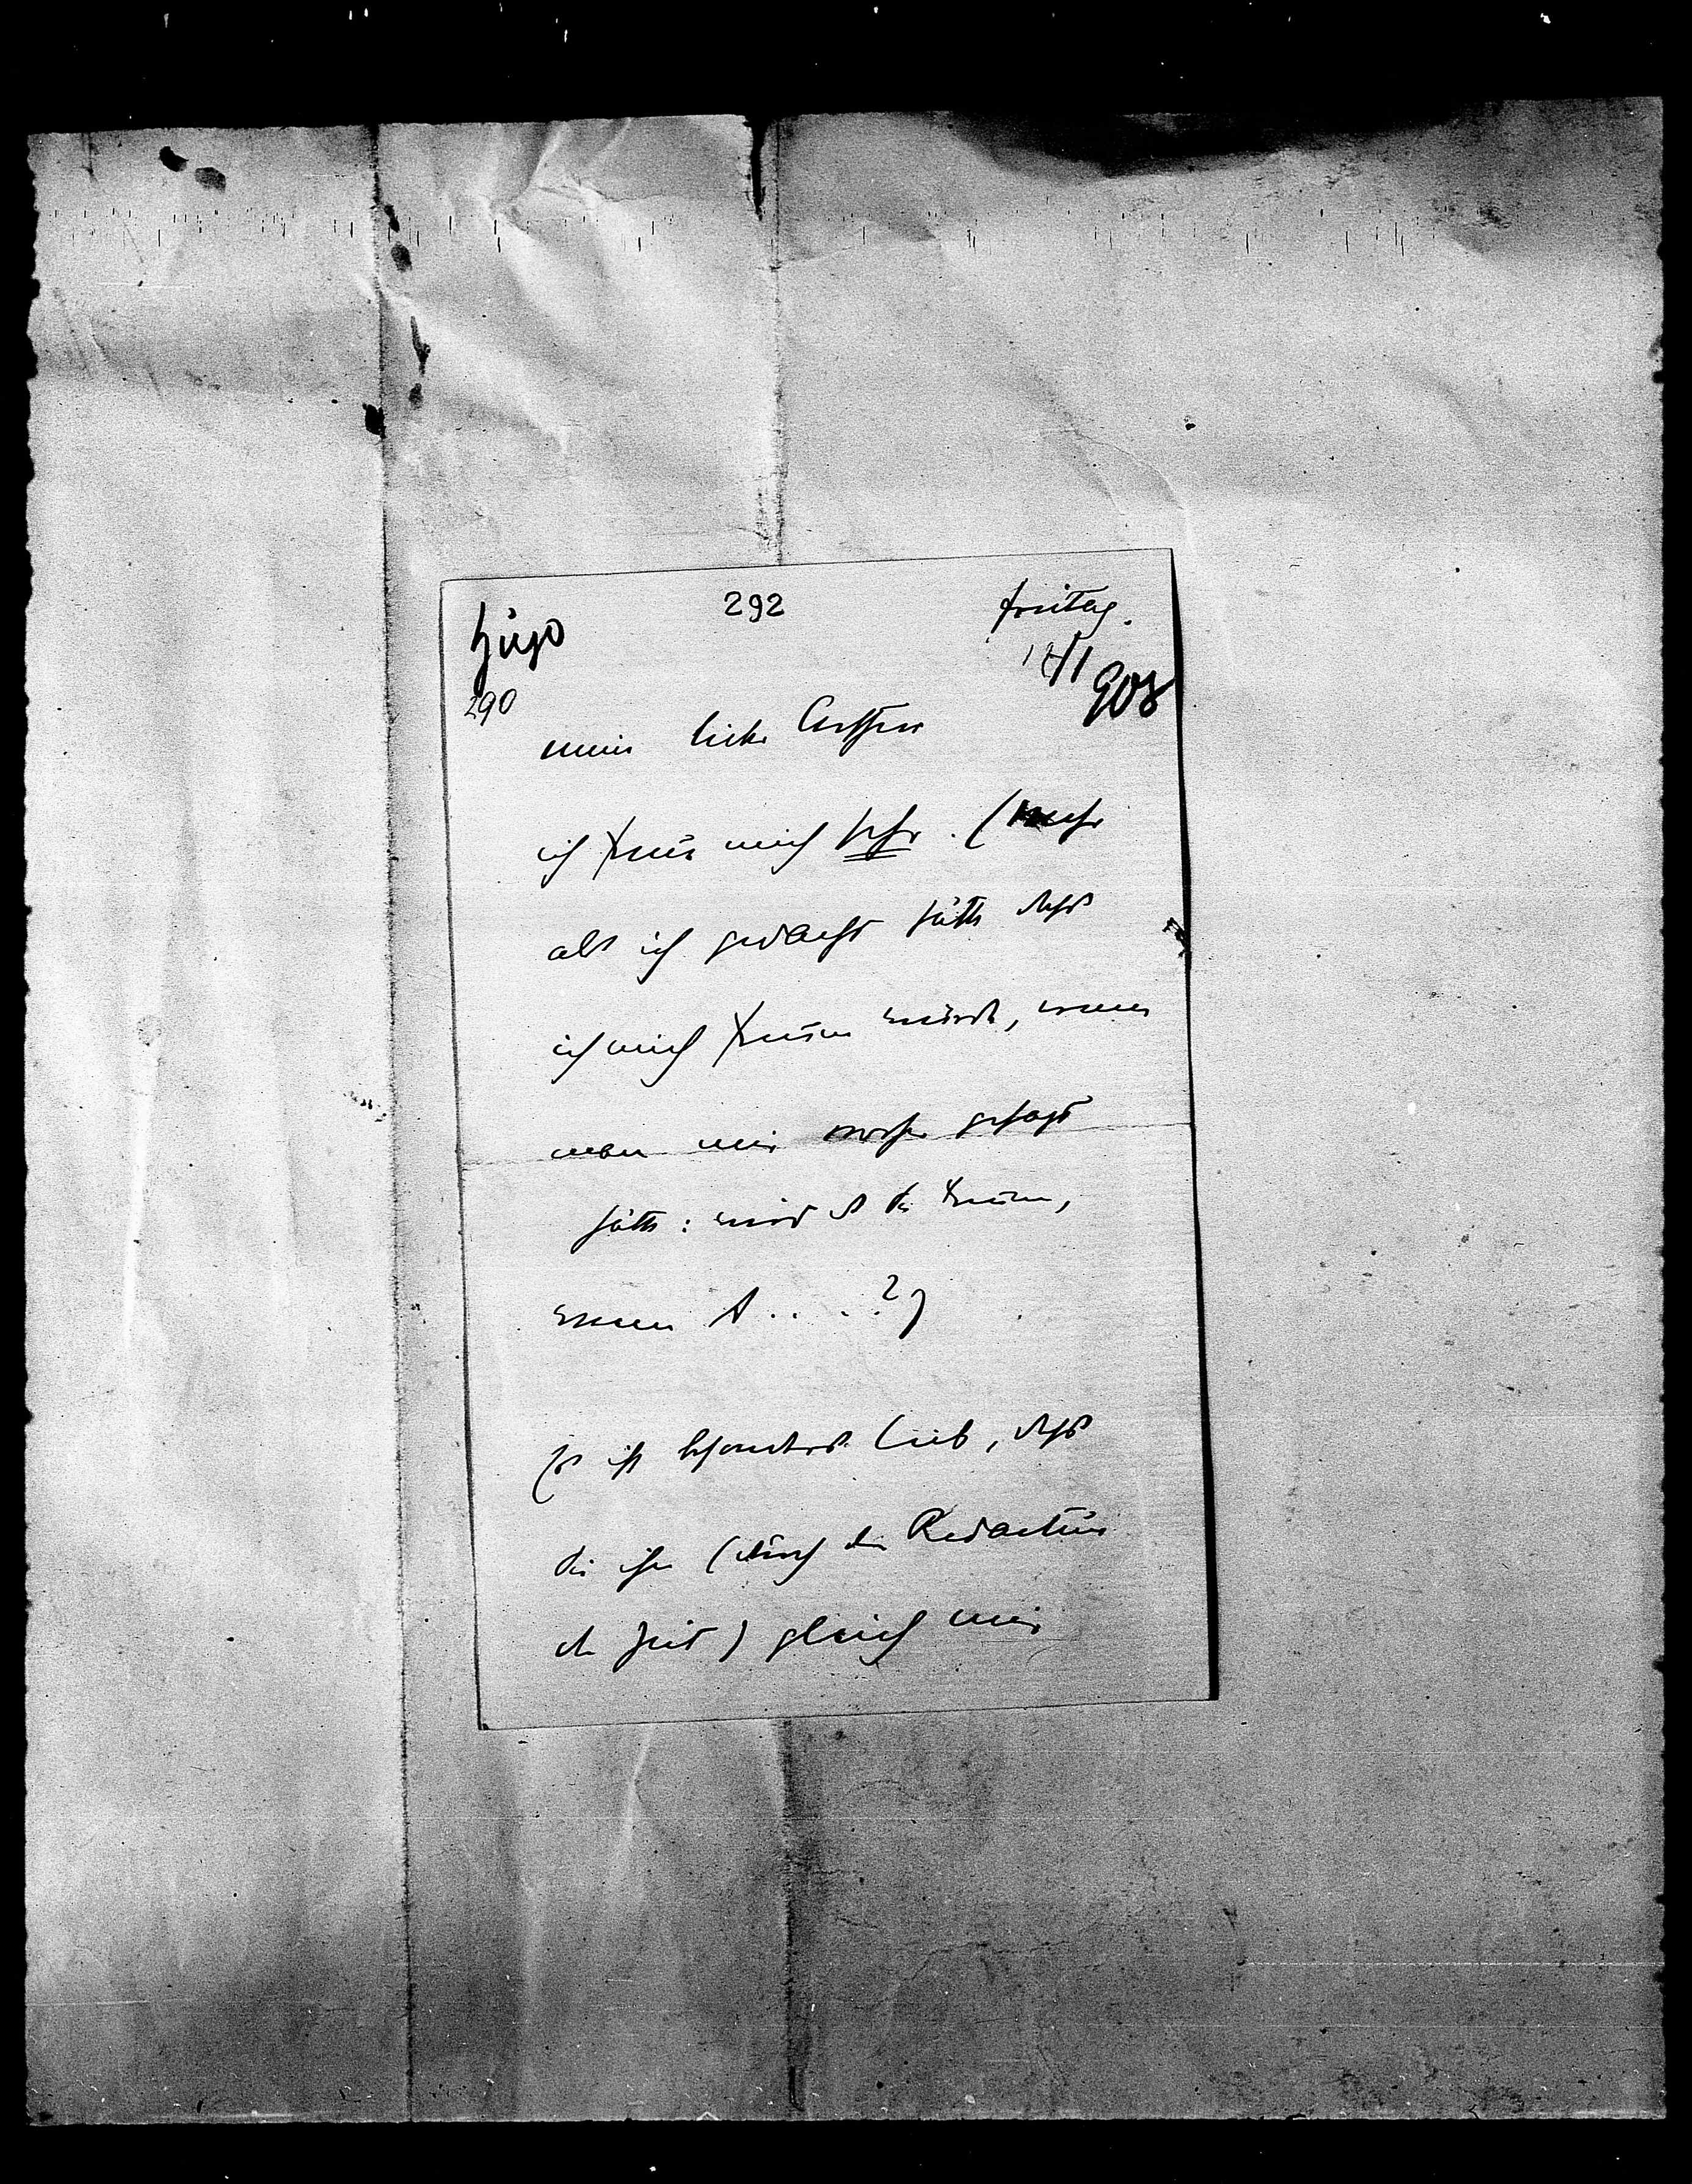 292
Hugo
freitag.
17/1 908
290
mein lieber Arthur
ich freue mich sehr. (Mehr
als ich gedacht hätte dass
ich mich freuen würde, wenn
man mir vorher gesagt
hätte: wirst du dich freuen,
wenn A . . . . ?)
Es ist besonders lieb, dass
die ihn (durch die Redacteure
der Zeit) gleich mir